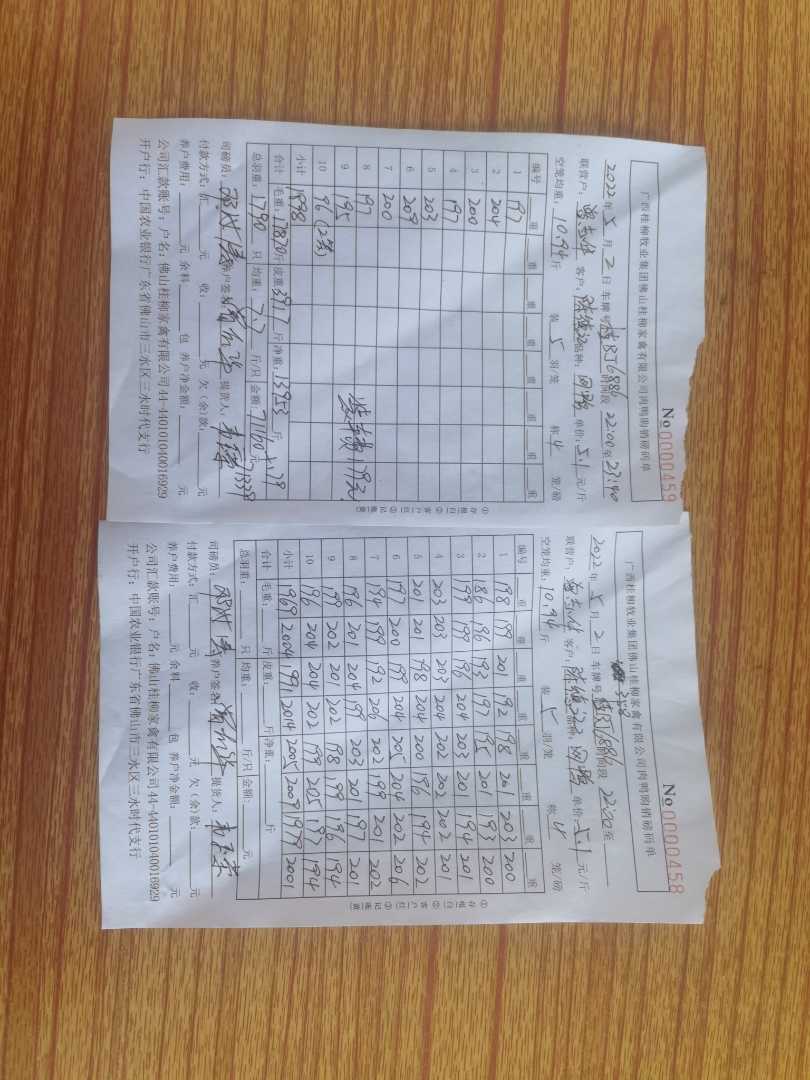 广西桂柳牧业集团佛山桂柳家禽有限公司肉鸭购销磅码单
No 0000459
2022 年 5 月 2 日 车牌号 桂BJ6886 时间段 22:00 至 23:40
联营户: 客户: 品种: 单价: 5.1 元/斤
空笼均重: 10.94 斤 装 5 羽/笼 称 4 笼/磅
编号 重 重 重 重 重 重 重 重
1 197
2 204
3 200
4 197
5 203
6 209
7 200
8 197
9 195
10 96 (2笼)
小计 1898
合计 毛重: 17870 斤 皮重: 3917 斤 净重: 13953 斤
总羽重: 1790 只 均重: 7.79 斤/只 金额: 71160 元
司磅员: 养户签名: 提货人:
付款方式:汇 元 收: 元 欠(余)款: 元
养户费用: 元 余料 包 养户净金额: 元
公司汇款账号:户名:佛山桂柳家禽有限公司 44-440101040016929
开户行:中国农业银行广东省佛山市三水区三水时代支行
①存根(白) ②客户(红) ③记账(黄)
广西桂柳牧业集团佛山桂柳家禽有限公司肉鸭购销磅码单
No 0000458
358
2022 年 5 月 2 日 车牌号 桂BJ6886 时间段 22:00 至
联营户: 客户: 品种: 单价: 5.1 元/斤
空笼均重: 10.94 斤 装 5 羽/笼 称 4 笼/磅
编号 重 重 重 重 重 重 重 重
1 198 199 201 192 198 201 203 200
2 186 196 193 197 195 201 193 200
3 199 199 196 204 203 201 194 201
4 203 203 203 204 202 202 202 201
5 201 201 198 204 200 196 194 202
6 197 200 199 204 205 204 202 206
7 194 199 192 206 202 199 201 202
8 196 201 204 199 203 201 197 201
9 199 202 201 202 198 199 196 194
10 196 204 204 202 199 205 197 194
小计 1969 2004 1991 2014 2005 2009 1979 2001
合计 毛重: 斤 皮重: 斤 净重: 斤
总羽重: 只 均重: 斤/只 金额: 元
司磅员: 养户签名: 提货人:
付款方式:汇 元 收: 元 欠(余)款: 元
养户费用: 元 余料 包 养户净金额: 元
公司汇款账号:户名:佛山桂柳家禽有限公司 44-440101040016929
开户行:中国农业银行广东省佛山市三水区三水时代支行
①存根(白) ②客户(红) ③记账(黄)